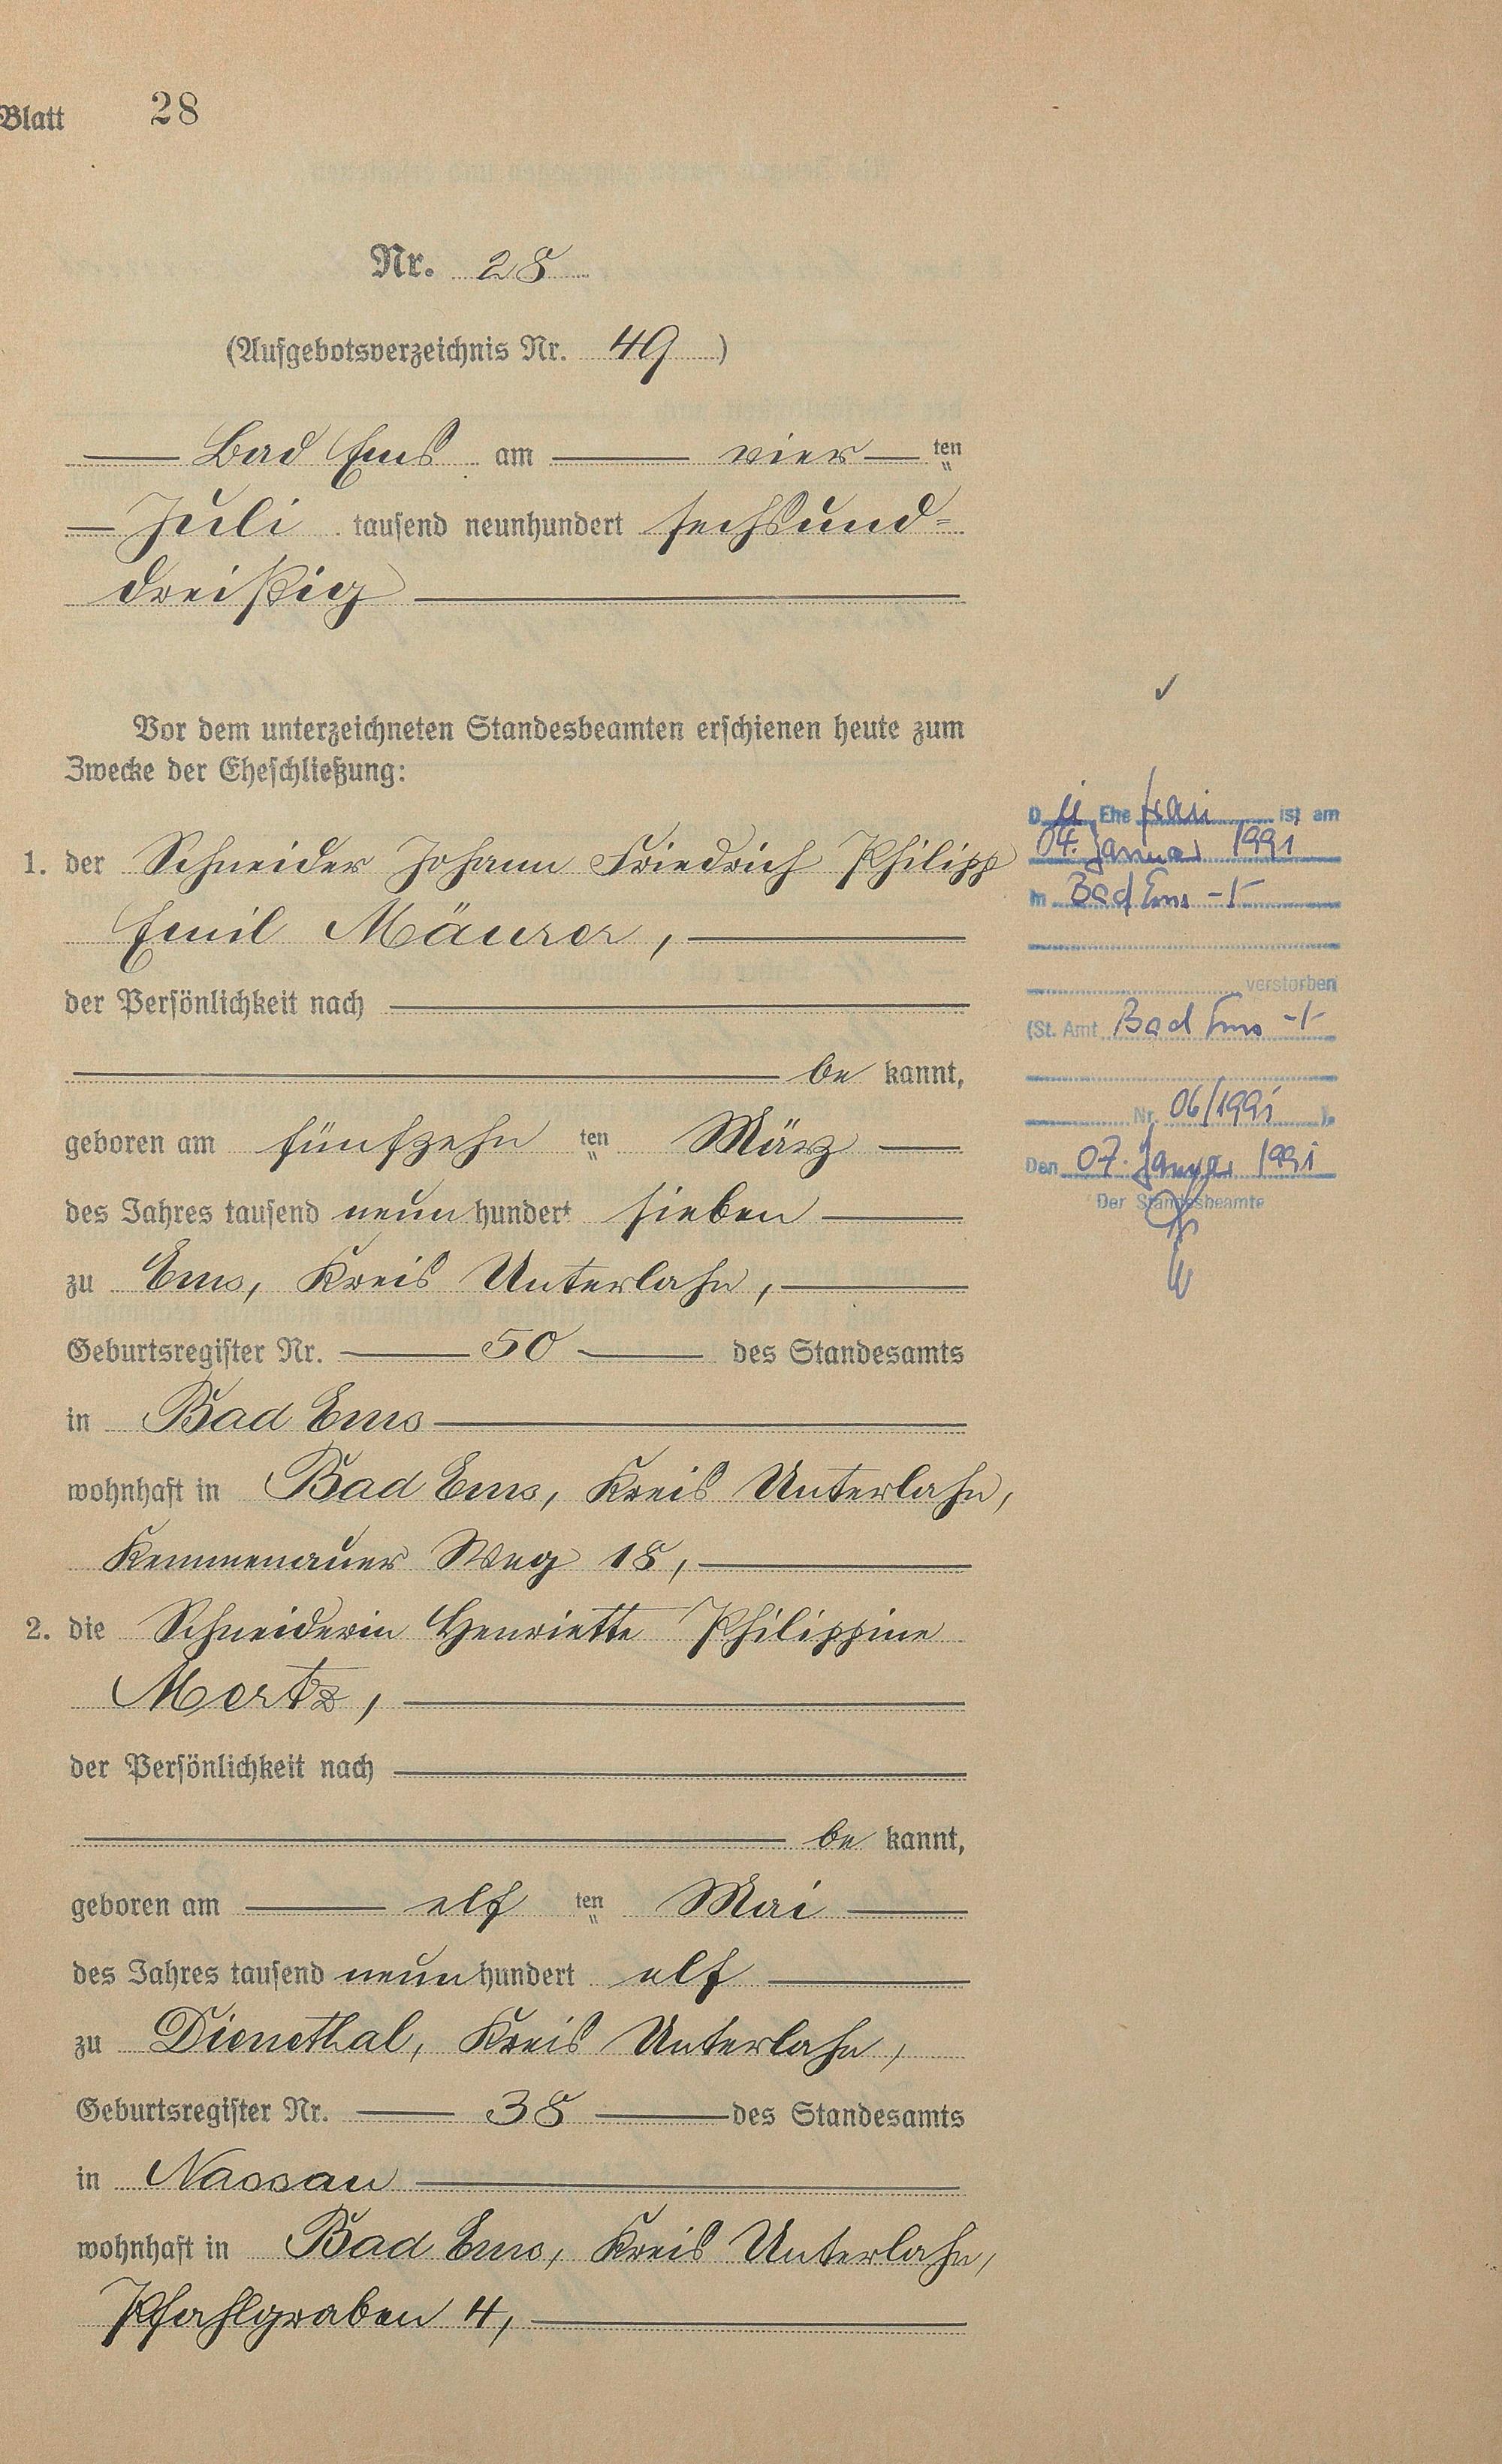 Blatt 28
Nr. 28
(Aufgebotsverzeichnis Nr. 49)
Bad Ems am vier ten
Juli tausend neunhundert sechsund=
dreißig
Vor dem unterzeichneten Standesbeamten erschienen heute zum
Zwecke der Eheschließung:
1. der Schneider Johann Friedrich Philipp
Emil Mäurer,
der Persönlichkeit nach
be kannt,
geboren am fünfzehn ten März
des Jahres tausend neun hundert sieben
zu Ems, Kreis Unterlahn,
Geburtsregister Nr. 50 des Standesamts
in Bad Ems
wohnhaft in Bad Ems, Kreis Unterlahn,
Kemmenauer Weg 18,
2. die Schneiderin Henriette Philippine
Mertz,
der Persönlichkeit nach
be kannt,
geboren am elf ten Mai
des Jahres tausend neun hundert elf
zu Dienethal, Kreis Unterlahn,
Geburtsregister Nr. 38 des Standesamts
in Nassau
wohnhaft in Bad Ems, Kreis Unterlahn,
Pfahlgraben 4,
Die Ehefrau ist am
04. Januar 1991
in Bad Ems -/-
verstorben
(St. Amt Bad Ems -/-
Nr. 06/1991 ).
Den 07. Januar 1991
Der Standesbeamte